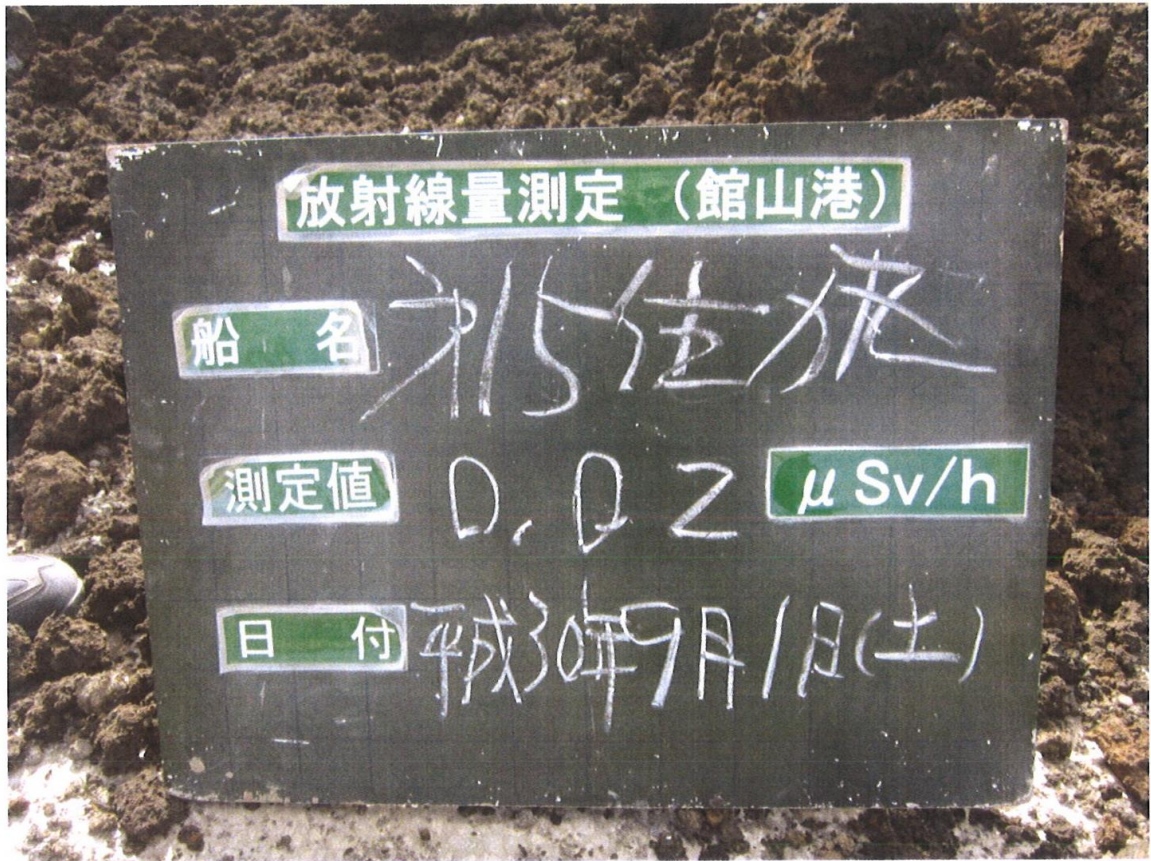 放射線量測定 （館山港）
船 名 才15住旅
測定値 0.02 μSv/h
日 付 平成30年9月1日(土)